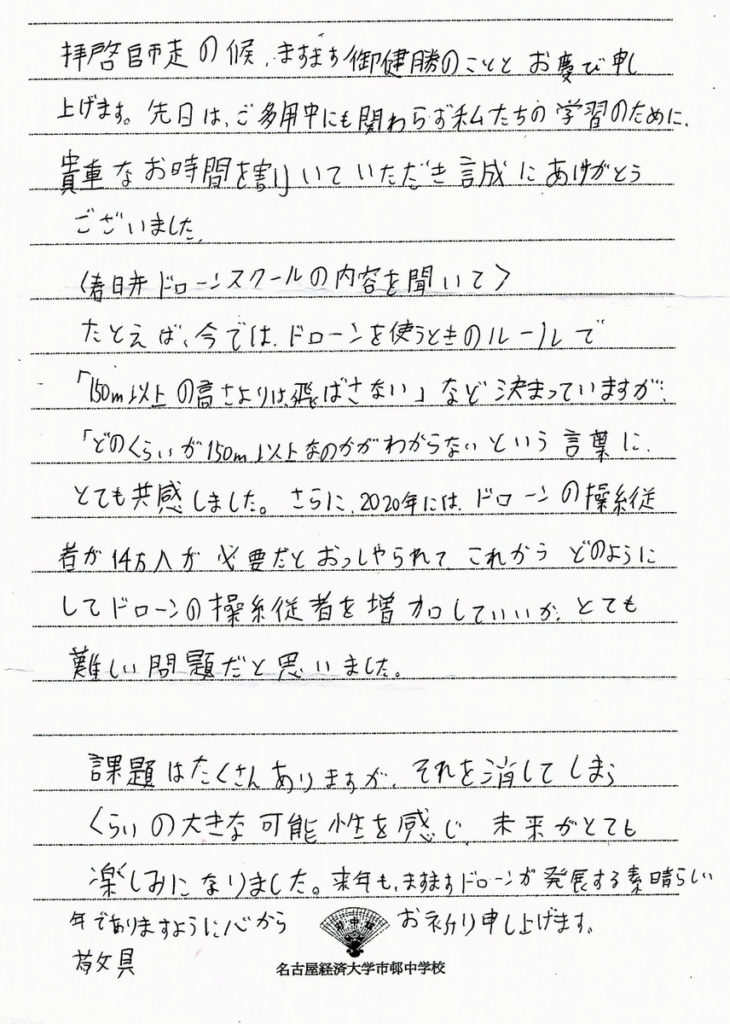 拝啓師走の候、ますます御健勝のこととお慶び申し
上げます。先日は、ご多用中にも関わらず私たちの学習のために、
貴重なお時間を割いていただき誠にありがとう
ございました。
〈春日井ドローンスクールの内容を聞いて〉
たとえば、今では、ドローンを使うときのルールで
「150m以上の高さよりは飛ばさない」など決まっていますが、
「どのくらいが150m以上なのかがわからないという言葉に、
とても共感しました。さらに、2020年には、ドローンの操縦従
者が14万人が必要だとおっしゃられてこれからどのように
してドローンの操縦従者を増加していいか、とても
難しい問題だと思いました。
課題はたくさんありますが、それを消してしまう
くらいの大きな可能性を感じ、未来がとても
楽しみになりました。来年も、ますますドローンが発展する素晴らしい
年でありますように心からお祈り申し上げます。
敬具
市邨
名古屋経済大学市邨中学校